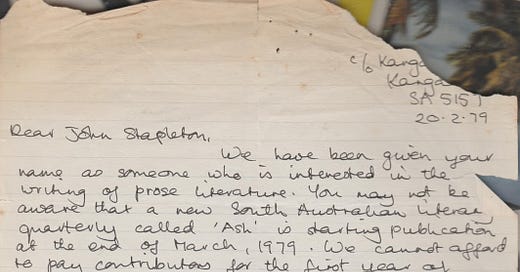 c/o Kanga
Kanga
SA 5157
20.2.79
Dear John Stapleton,
We have been given your
name as someone who is interested in the
writing of prose literature. You may not be
aware that a new South Australian literary
quarterly called 'Ash' is starting publication
at the end of March, 1979. We cannot afford
to pay contributors for the first year of